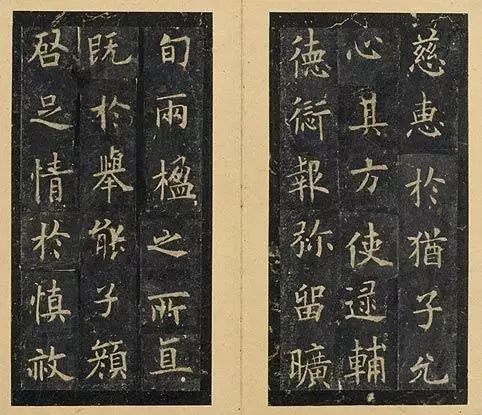 慈惠於猶子允
心其方使逯輔
德愆報弥留曠
旬兩楹之所直
既於舉能子顏
启足情於慎祔